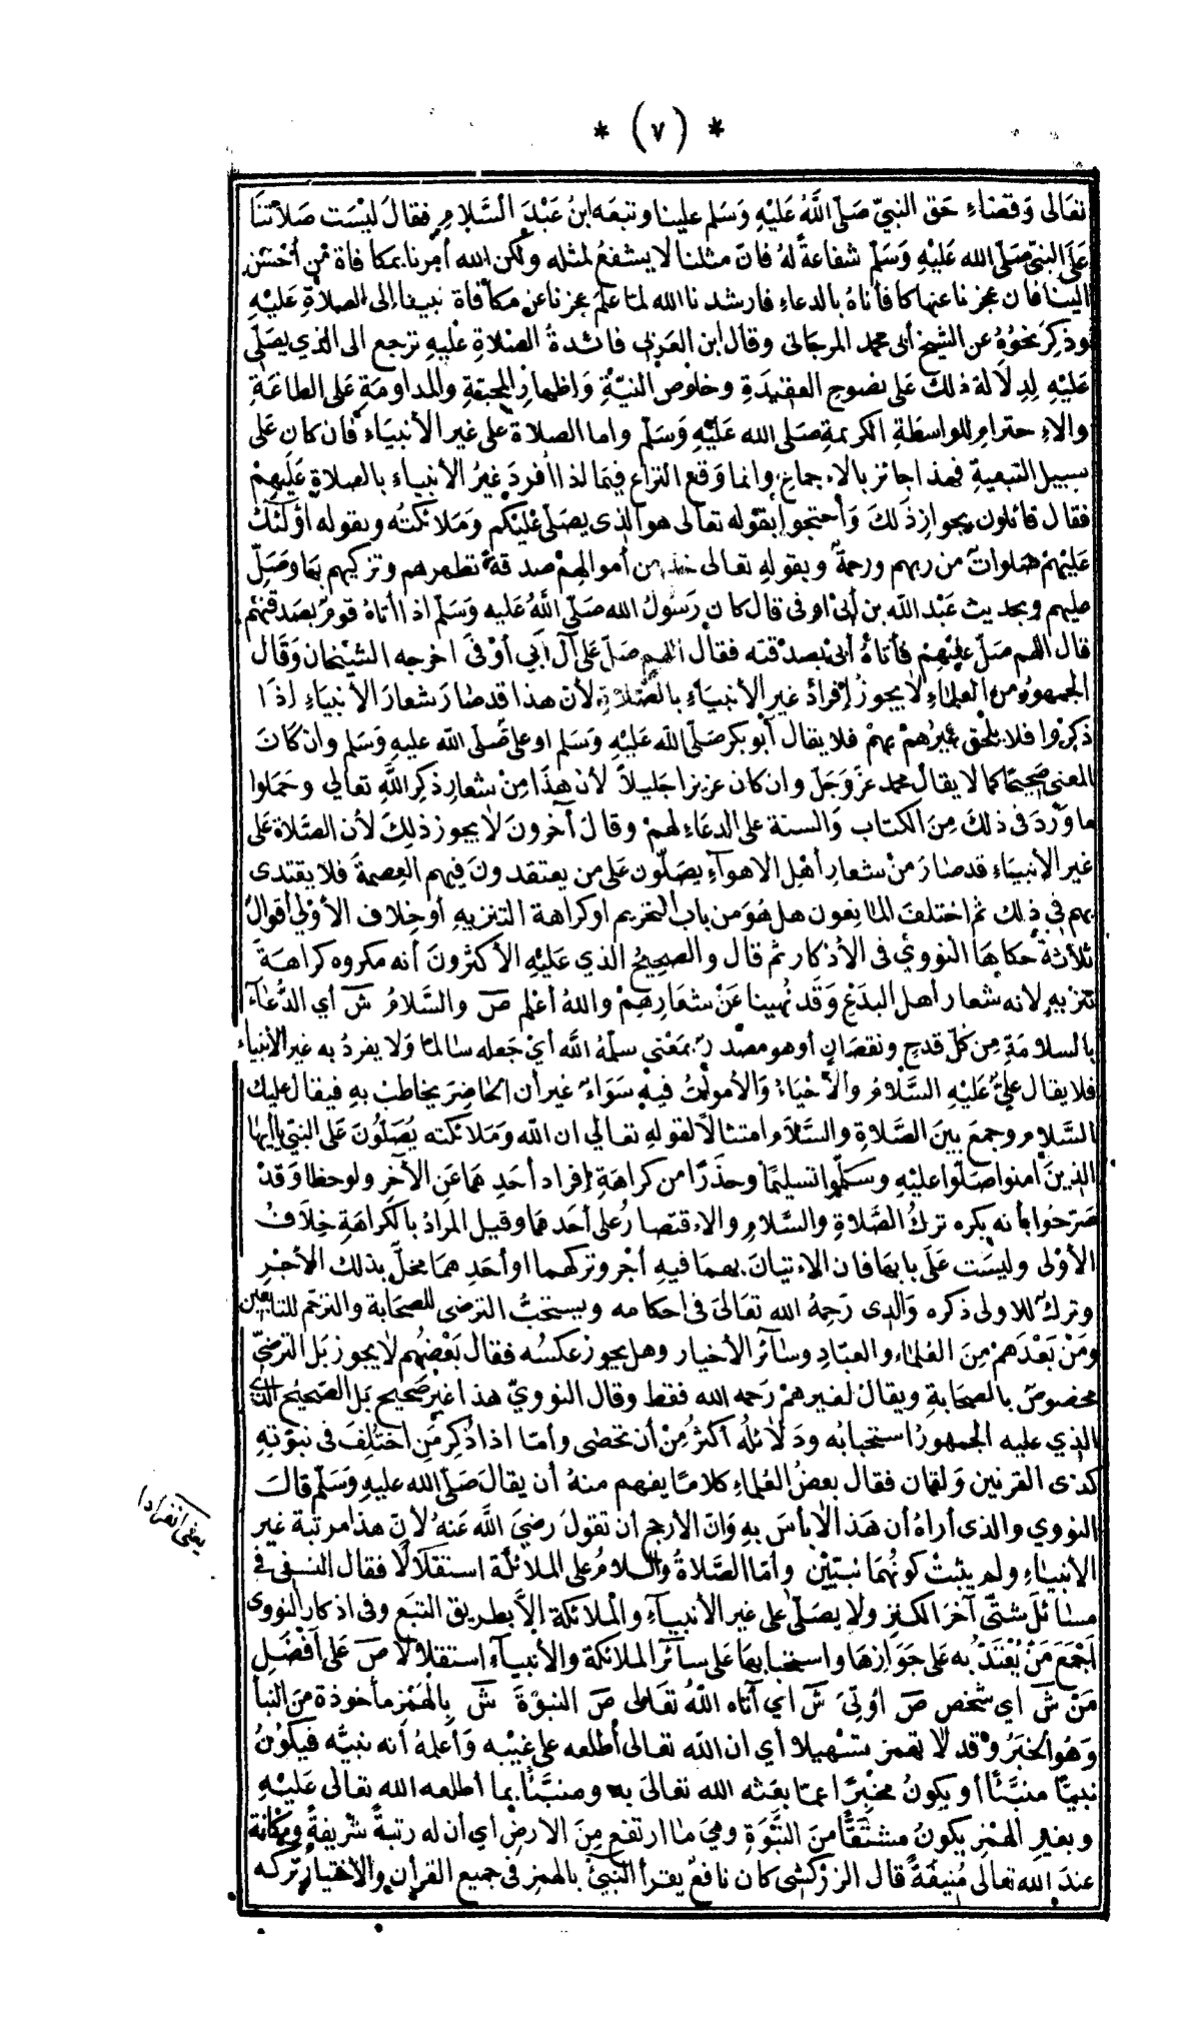 * (٧) *
تعالى وقضاء حق النبيّ صَلّى اللَّهُ عَلَيْهِ وَسَلم علينا وتبعَه ابنُ عَبْدِ السَّلامِ فقالَ ليْسَت صَلاتنَا
عَلى النبيّ صَلّى الله عَلَيْهِ وَسَلّم شفاعةً لهُ فانّ مثلنا لا يشفعُ لمثله ولكن الله أمرنا بمكافاة مَن أحْسَن
الينا فان عجزنا عنها كافأناهُ بالدعاءِ فارشدنا الله لما علم عجزنا عن مكافاة نبينا إلى الصلاةِ عَليْهِ
وذكرَ نحوُهُ عن الشيخ أبى محمد المرجانى وقال ابن العربى فائدةُ الصّلاةِ عليْهِ ترجع الى الذي يصَلّى
عَليْهِ لِدِلالة ذلكَ عَلى نصوحِ العقيدَةِ وخلوص النيّةِ وَإظهارِ المحبّةِ والمداومَةِ عَلى الطاعَةِ
والاحترامِ للواسطةِ الكريمةِ صَلى الله عَليْهِ وَسَلّم واما الصلاة على غير الأنبيَاء فان كان عَلى
سبيل التبعيةِ فهذا جائز بالاجماع وانما وَقع النزاع فيمَا اذا أفردَ غيرُ الأنبيَاء بالصلاةِ عَليهِمْ
فقال قائلون بجوازِ ذلكَ وَأحتجوا بقوْله تعالى هو الذى يصَلى عَليْكم وَمَلائكتُه وبقوله أولئكَ
عَليْهمْ صَلواتٌ من ربهم ورحمةٌ وبقولهِ تعالى خذ من أموالِهمْ صدقةً تطهرهم وتزكيهم بهَا وصَلِّ
عليهم وبحديث عَبْد الله بن أبى اوفى قال كان رَسُولُ الله صَلّى اللَّهُ عَليه وَسَلّم اذا أتاهُ قومٌ بصَدقتهم
قال اللهم صَلّ عليْهِمْ فأتاهُ أبى بصدْقته فقال اللهم صَلّ عَلى آل أبي أوْفىَ اخرجه الشيْخان وَقال
الجمهورُ من العلماءِ لا يجوزُ إفرادُ غير الأنبيَاء بالصّلاةِ لأن هذا قد صَارَ شعارَ الأنبيَاءِ اذَا
ذكِرُوا فلا يلحق غيرُهمْ بهمْ فلا يقال أبو بكر صَلّى اللّه عَليْهِ وَسَلم او على صَلّى الله عليهِ وَسَلم وان كانَ
المعنى صَحيحًا كما لا يقالُ محمد عَزّ وَجَلّ وان كان عزيزا جَليلاً لأن هذَا مِنْ شعارِ ذكِر اللَّهِ تعالى وحَمَلوا
ما وَرْدَ فى ذلكَ مِنَ الكتاب وَالسنة على الدعَاءِ لهمْ وقالَ آخرونَ لا يجوز ذلكَ لأن الصّلاة عَلى
غير الأنبيَاءِ قد صَارَ منْ شعارِ أهْل الاهوآءِ يصَلّون عَلى من يعتقدونَ فيهم العِصمةَ فلا يقتدى
بهم في ذلك ثم اختلفَ المانعون هل هُوَ من باب التحريم اوكراهة التنزيهِ أوخلاف الأوْلى أقوالٌ
ثلاثةٌ حكاهَا النّوويّ فى الأذكار ثم قال والصحيحُ الذي عَليْهِ الأكثرُونَ أنه مكروه كراهةَ
تنزيهٍ لانه شعار أهل البدَع وَقد نُهينا عَنْ شعَارِهِمْ واللهُ أعْلم صَ والسَّلامُ شَ أي الدُّعَآءُ
بالسلامَةِ مِن كلّ قدحٍ ونقصَانٍ أوهو مصْدرٌ بمَعْنى سلمّهُ اللَّه أيْ جَعله سالمًا وَلا يفردُ به غير الأنبيَاء
فلا يقال عليٌّ عَليْهِ السَّلامُ والأحْيَاءُ وَالأموْاتُ فيهِ سَوَاءٌ غير أن الحاضِرَ يخاطبُ بهِ فيقال عليك
السَّلام وجمعَ بينَ الصَّلاةِ والسَّلامِ امتثالاً لقولهِ تعالي ان اللّه وَمَلائكته يُصَلّونَ عَلى النبيّ يا أيها
الذينَ آمنوا صَلّوا عليْهِ وسَلّموا تسليمًا وحذرًا من كراهَةِ إفراد أحَدِهِمَا عَن الآخر ولو خطا وَقدْ
صَرّحوا بأنه يكره تركُ الصّلاةِ والسَّلامِ والاقتصارُ على أحَدهمَا وقيل المرادُ بالكراهَةِ خِلافُ
الأوْلى وليسَت عَلى بابهَا فان الاتيانَ بهمَا فيهِ أجْر وتركهما اوأحَدِهمَا مخلّ بذلك الأجْرِ
وتركٌ للاولى ذكره وَالدى رَحِمهُ الله تعَالىَ فى احكامه ويستحَبُّ الترضى للصحَابة والترحّم للتابعين
ومَنْ بَعْدَهمْ مِنَ العُلماء والعبّادِ وسآئر الأخيار وهل يجوز عكسُه فقال بَعْضُهُم لا يجوز بَل الترضّيّ
مخصوصٌ بالصحَابةِ ويقال لغيرهمْ رَحمه الله فقط وقال النوويّ هذا غير صَحيح بَل الصّحيْحُ الذي
الذي عليه الجمهورُ استحبابُه ودَلائلُه أكثرُ مِنْ أن تحصَى وأمّا اذا ذُكِر مَن اختُلِفَ فى نبوّتهِ
كذى القرنين وَلقمان فقال بعضُ العُلماءِ كلامًا يفهم منهُ أن يقالَ صَلّى الله عليهِ وَسَلّم قالَ
النووي والذى أراهُ أن هَذ الابأسَ بهِ وَانّ الأرجح أن تقولَ رضيَ اللَّه عَنهُ لأنّ هذا مرتبة غير
الأنبيَاءِ ولم يثبتْ كونُهُمَا نبييْن وأمّا الصَّلاةُ وَالسلامُ على الملائكة استقلالاً فقال النسفى فى
مسَائل شتّى آخرَ الكنز ولا يصَلّى عَلى غير الأنبيآءِ والملائكة إلاَّ بطريق التبَع وفى اذكار النووى
أجْمَعَ مَنْ يُعْتدُّ به عَلى جَوازِهَا واستحبابهَا عَلى سآئر الملائكة والأنبيآء استقلالاً صَ عَلى أفضَلِ
مَنْ شَ أي شخص صَ اوتىَ شَ أي آتاه اللّهُ تعَالى صَ النبوّةَ شَ بالهَمْزِ مأخوذة مِنَ النبأ
وَهُوَ الخبَرُ وقد لا تهمز تسْهيلا أي ان اللّه تعَالى أطلعه على غيْبه وَأعلمهُ أنه نبيُّه فيكوُنُ
نبيًّا منبَّئًا أويكونُ مخبرًا عمّا بعَثه الله تعالىَ به ومنبَّئًا بما أطلعه الله تعالى عَليْهِ
وبغير الهمْزِ يكونُ مشتقًّا منَ النَّبْوَةِ وهيَ ما ارتفع مِنَ الارضِ أي أن له رتبةً شريفةً ومكانة
عندَ الله تعالى مُنيفةً قال الزركشى كان نافعٌ يقرأ النَّبيّْ بالهمزِ فى جميع القرأن والاختيار تركه
يعنى انفرادا